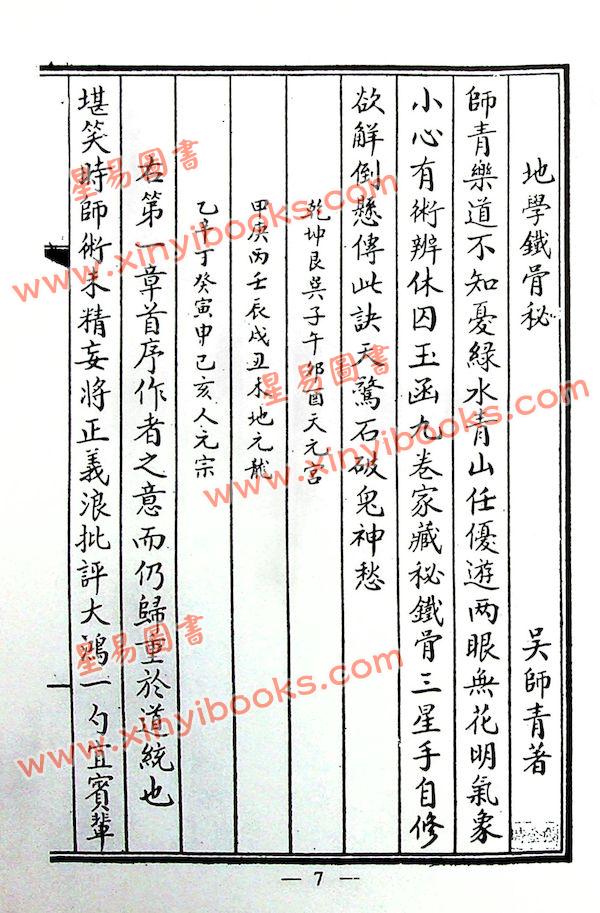 地學鐵骨秘 吴師青著
師青樂道不知憂綠水青山任優遊两眼無花明氣象
小心有術辨休囚玉函九卷家藏秘鐵骨三星手自修
欲解倒懸傳此訣天驚石破鬼神愁
乾坤艮巽子午卯酉天元宫
甲庚丙壬辰戌丑未地元龍
乙辛丁癸寅申巳亥人元宗
右第一章首序作者之意而仍歸重於道統也
堪笑時師術未精妄將正義浪批評大鴻一勺宜賓輩
— 7 —
星易圖書
www.xinyibooks.com
星易圖書
www.xinyibooks.com
星易圖書
www.xinyibooks.com